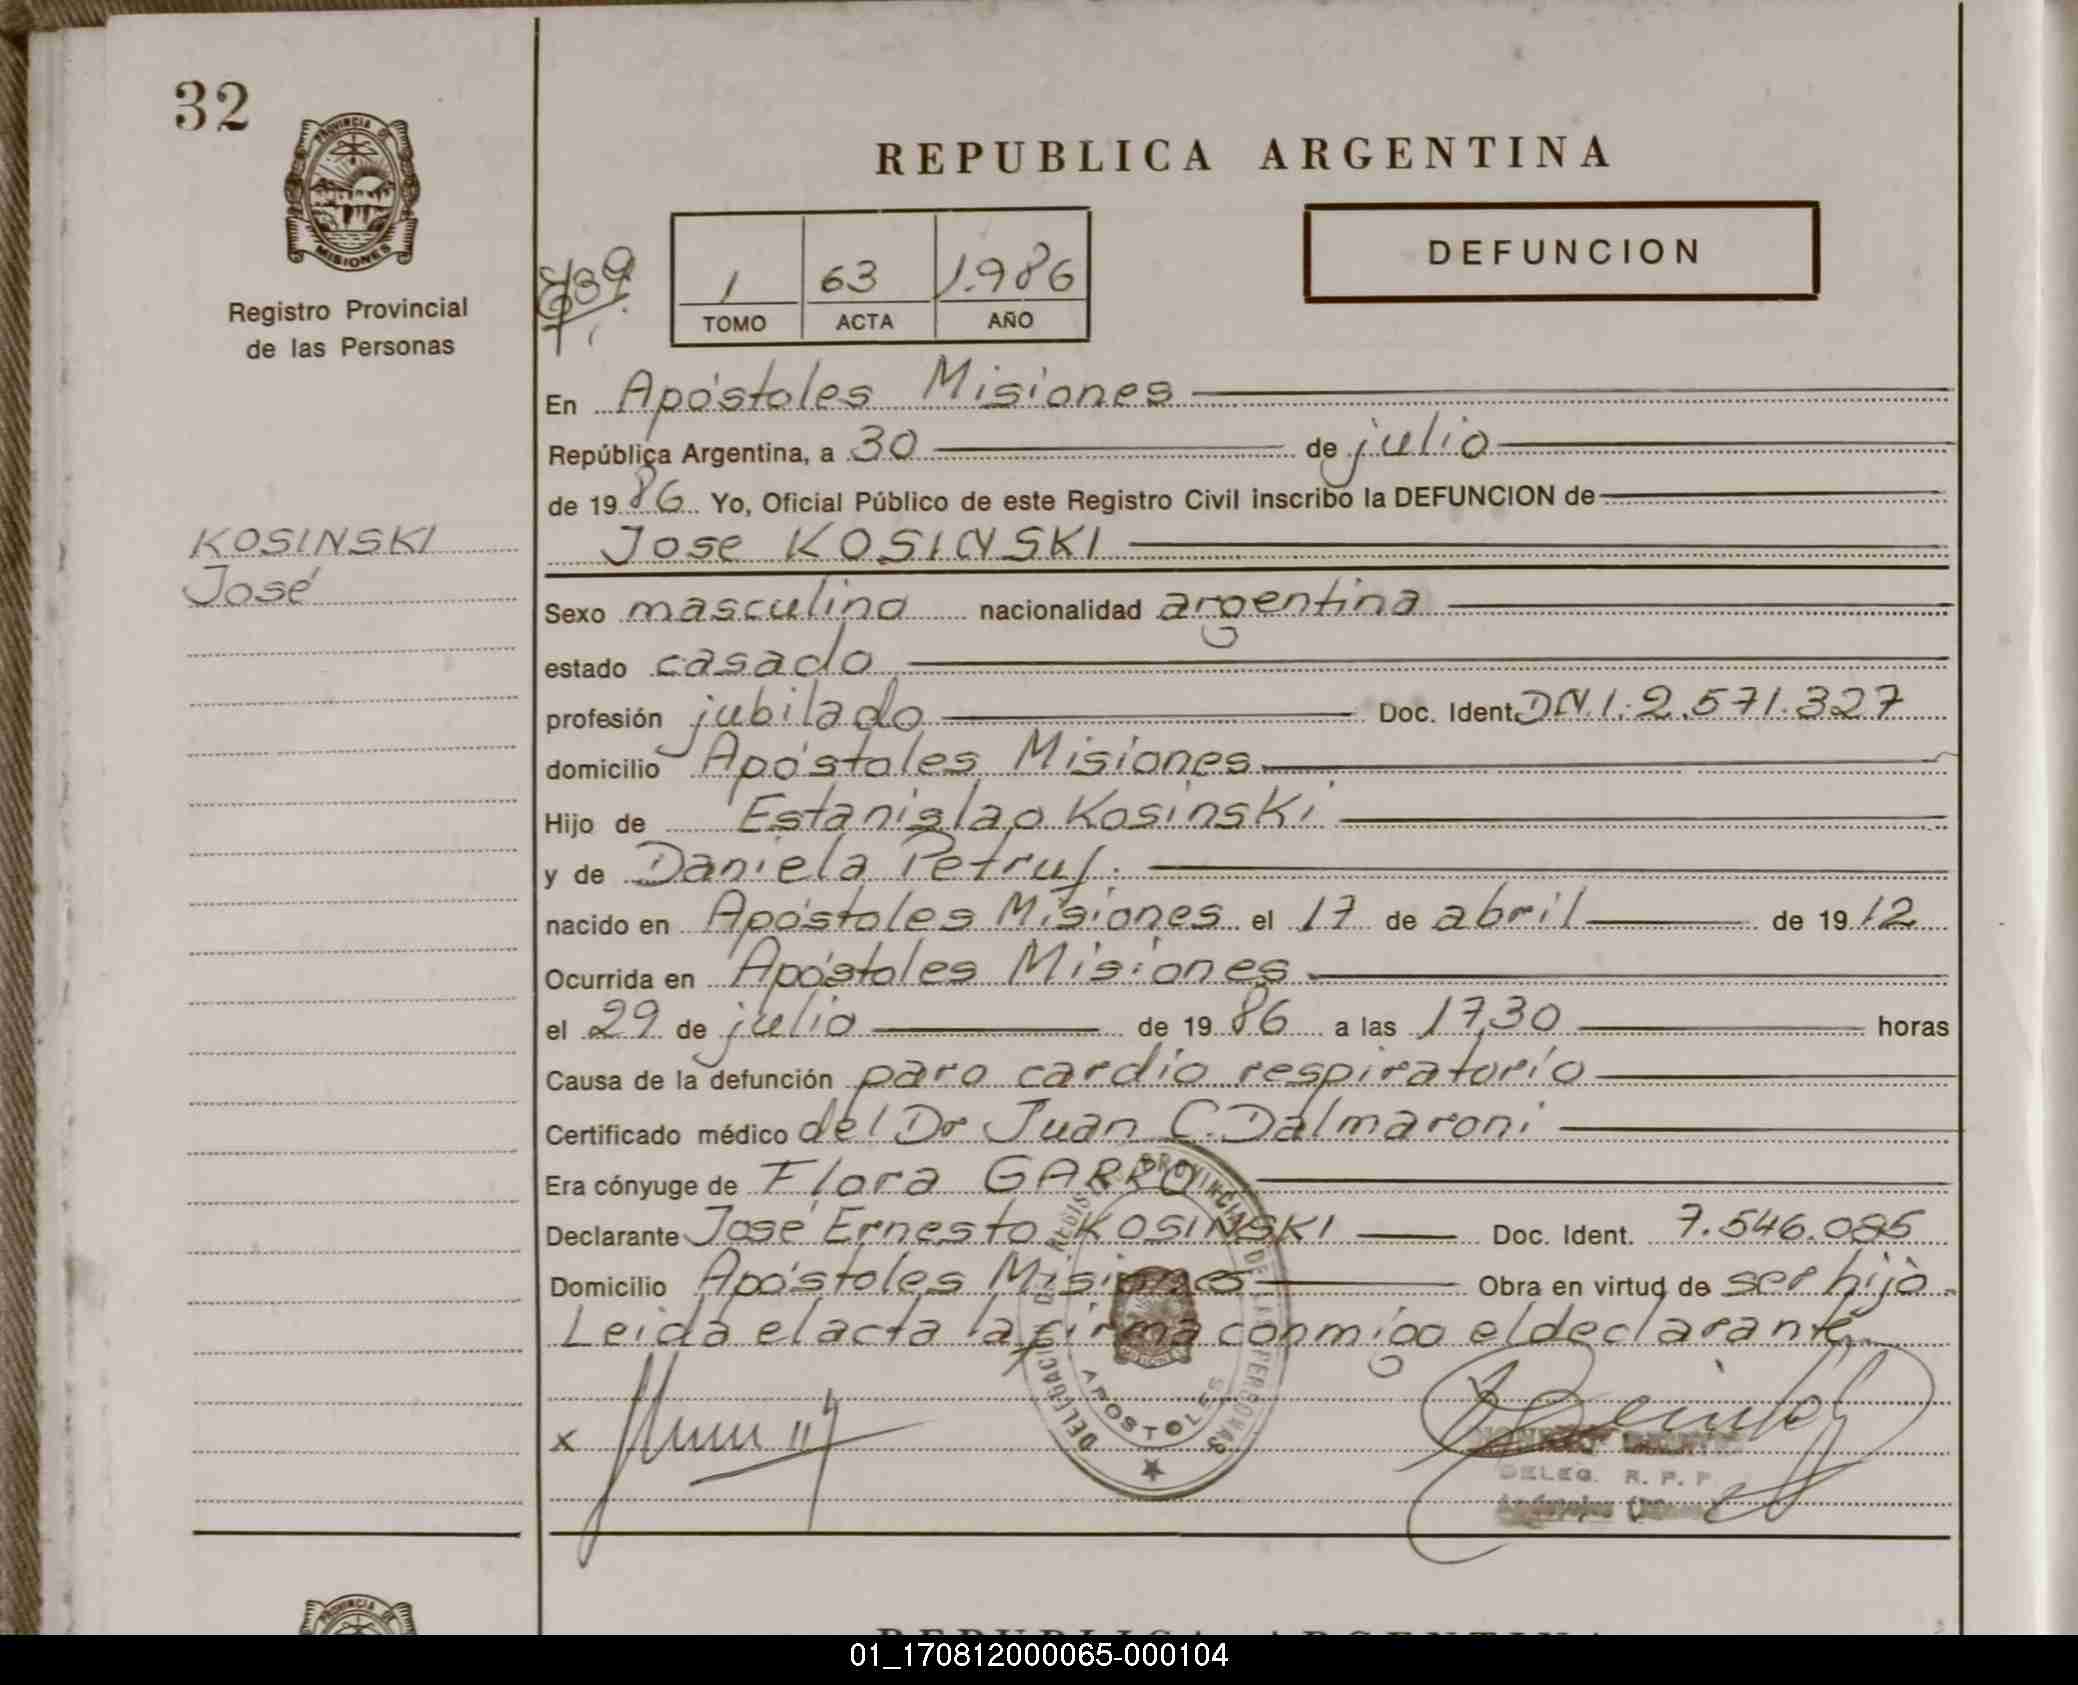 32
PROVINCIA DE
MISIONES
Registro Provincial
de las Personas
KOSINSKI
José
REPUBLICA ARGENTINA
DEFUNCION
1 63 1.986
TOMO ACTA AÑO
En Apóstoles Misiones
República Argentina, a 30 de julio
de 1986 Yo, Oficial Público de este Registro Civil inscribo la DEFUNCION de
Jose KOSINSKI
Sexo masculino nacionalidad argentina
estado casado
profesión jubilado Doc. Ident. DN.I. 2.571.327
domicilio Apóstoles Misiones
Hijo de Estanislao Kosinski
y de Daniela Petruf.
nacido en Apóstoles Misiones el 17 de abril de 1912
Ocurrida en Apóstoles Misiones
el 29 de julio de 1986 a las 17,30 horas
Causa de la defunción paro cardio respiratorio
Certificado médico del Dr Juan C. Dalmaroni
Era cónyuge de Flora GARRO
Declarante José Ernesto KOSINSKI Doc. Ident. 7.546.085
Domicilio Apóstoles Misiones Obra en virtud de ser hijo
Leida el acta la firma conmigo el declarante
x
APOSTOLES
DELEG. R. P. P.
PROVINCIA DE
REPUBLICA ARGENTINA
01_170812000065-000104